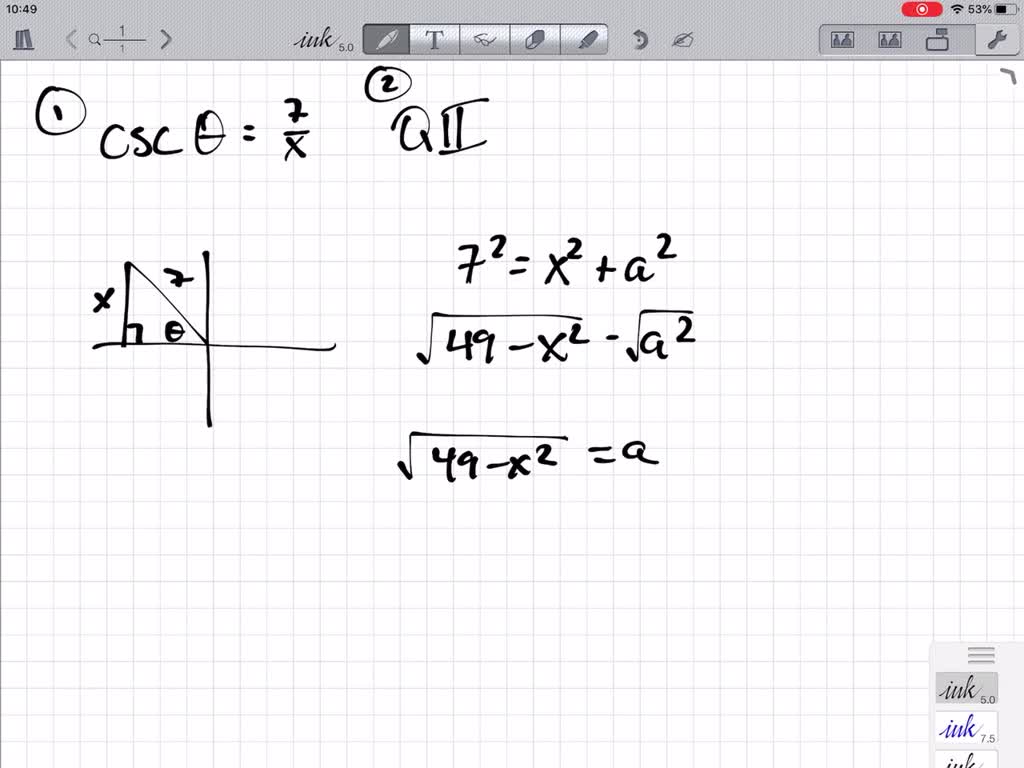 10:49 53%
1
1
ink 5.0 T
① csc θ = 7/x ② QII
7² = x² + a²
√49 - x² - √a²
x 7 θ
√49 - x² = a
ink 5.0
ink 7.5
ink